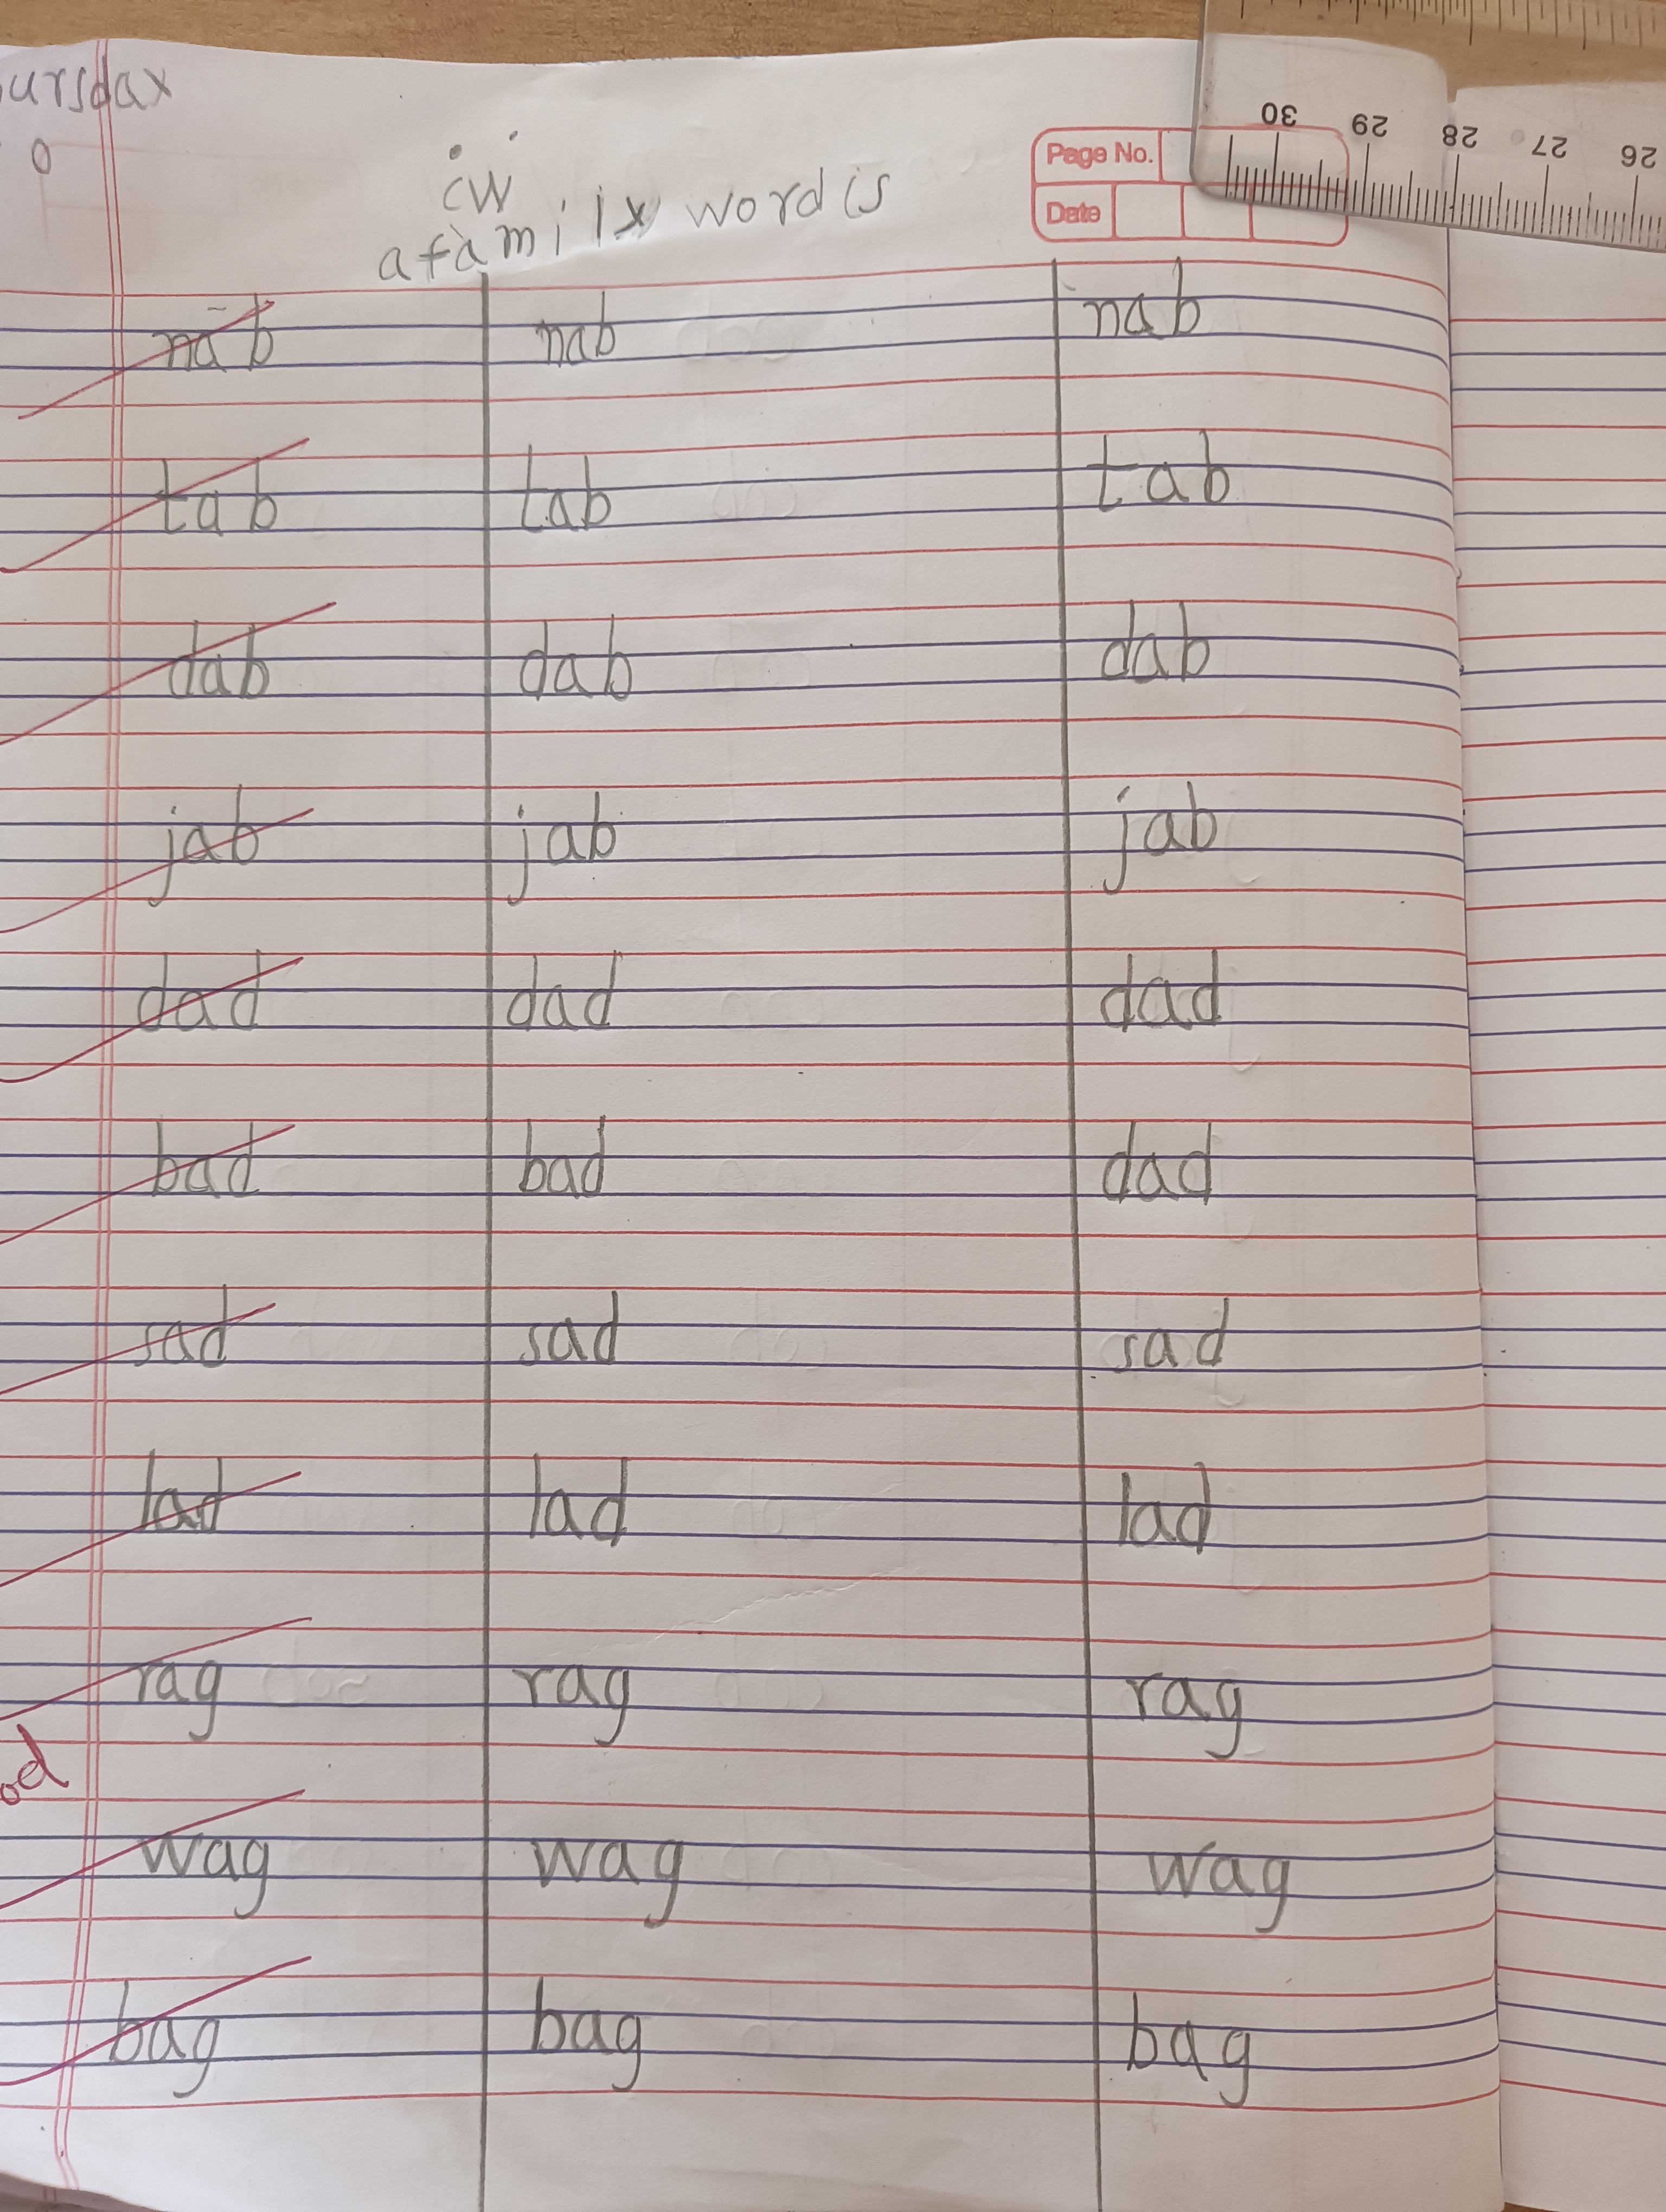 ursdax
0
cw
Page No.
Date
30 29 28 27 26
a family words
nab nab nab
tab tab tab
dab dab dab
jab jab jab
dad dad dad
bad bad dad
sad sad sad
lad lad lad
rag rag rag
od
wag wag wag
bag bag bag